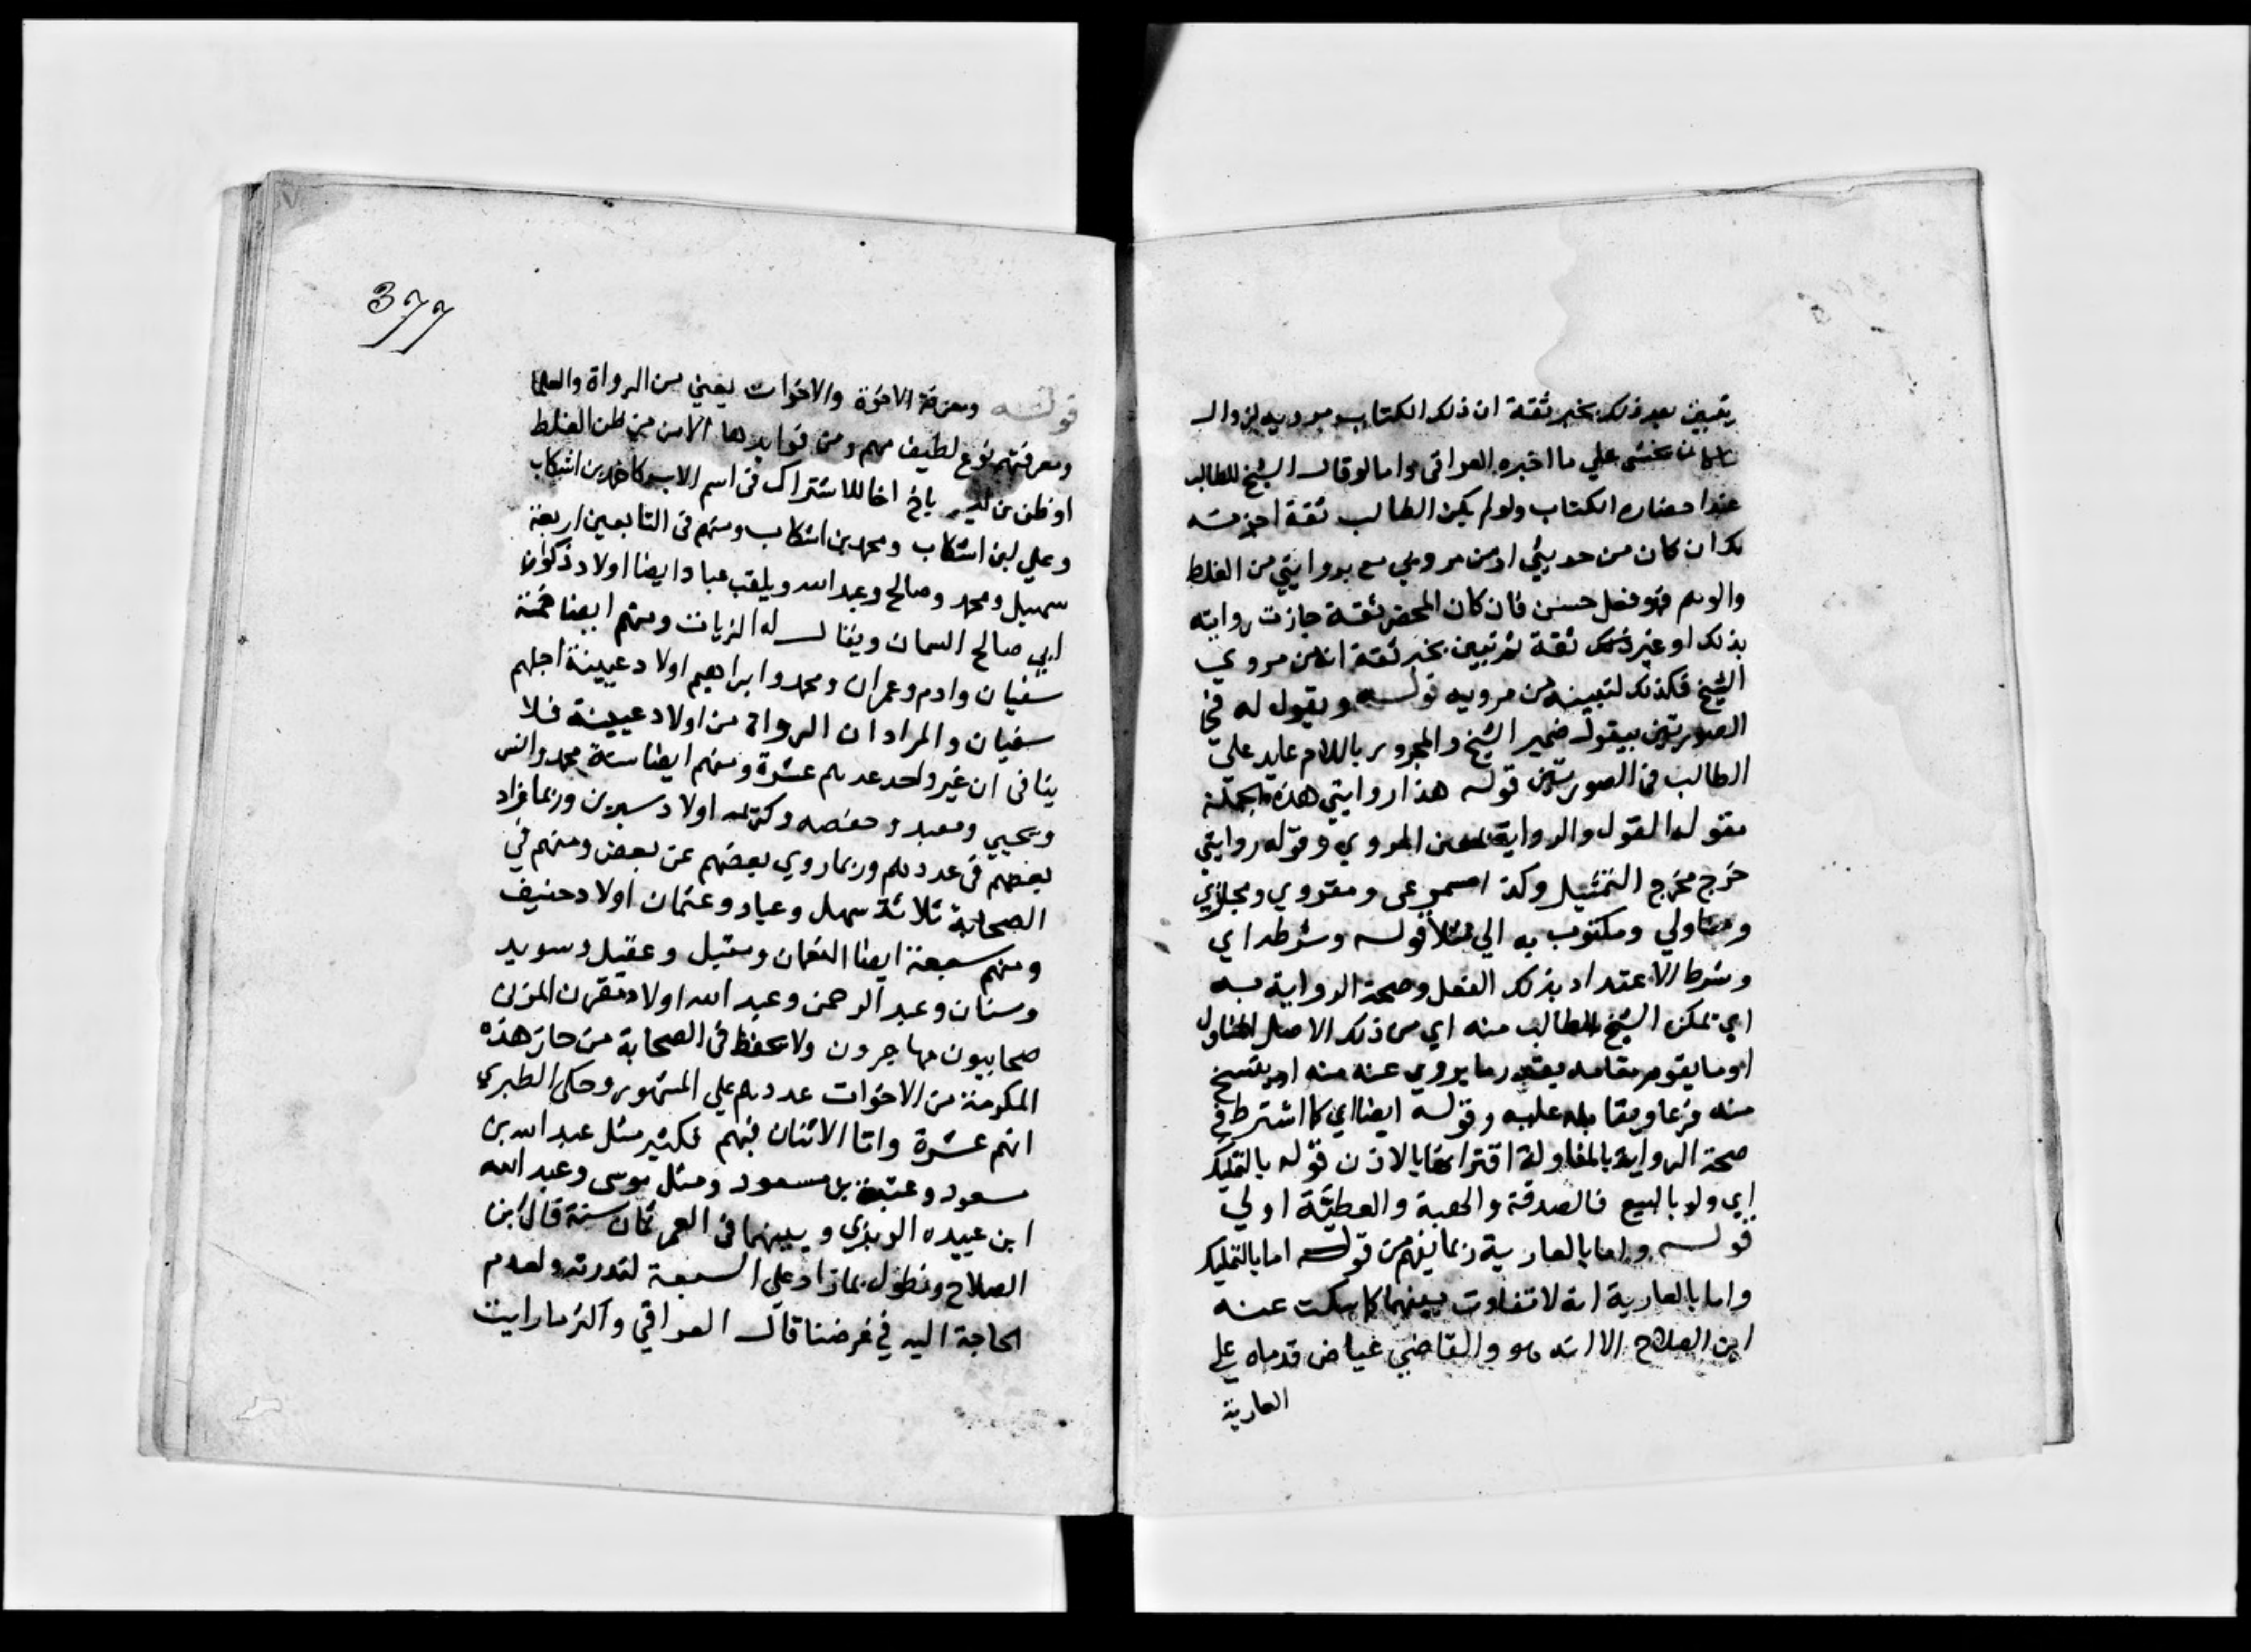 يتبين بعد ذلك بخبر ثقة ان ذلك الكتاب مرويه لزوال
ما كان يخشى علي ما اخبره العراقي واما لو قال الشيخ للطالب
عند احضاره الكتاب ولو لم يكن الطالب ثقة اجزته
لك ان كان من حديثي او من مرويي مع بروايتي من الغلط
والوهم فهو فعل حسن فان كان المحضر ثقة جازت روايته
بذلك او غير ثقة ثم تبين بخبر ثقة انه من مروي
الشيخ فكذلك لتبينه من مرويه قوله ويقول له في
الصورتين بيقول ضمير الشيخ والمجرور باللام عايد علي
الطالب في الصورتين قوله هذا روايتي هذه الجملة
مقوله القول والرواية بمعني المروي وقوله روايتي
خرج مخرج التمثيل وكذا مسموعي ومقروي ومجازي
ومناولي ومكتوب به الي مثلا قوله وشرطه اي
وشرط الاعتداد بذلك الفعل وصحة الرواية به
اي تمكن الشيخ الطالب منه اي من ذلك الاصل المناول
او ما يقوم مقامه بقدر ما يروي عنه منه او ينسخ
منه فرعا ويقابله عليه وقوله ايضا اي كما اشترط في
صحة الرواية بالمناولة اقترانها بالاذن قوله بالتمليك
اي ولو بالبيع فالصدقة والهبة والعطيّة اولي
قوله واما بالعارية ربما يفهم من قوله اما بالتمليك
واما بالعارية انه لا تفاوت بينهما كما سكت عنه
ابن الصلاح الا انه هو والقاضي عياض قدماه علي
العارية
377
قوله ومعرفة الاخوة والاخوات يعني من الرواة والعلما
ومعرفتهم نوع لطيف مهم ومن فوايدها الامن من ظن الغلط
او ظن من ليس باخ اخا للاشتراك في اسم الاب كاحمد بن اشكاب
وعلي ابن اشكاب ومحمد بن اشكاب ومنهم في التابعين اربعة
سهيل ومحمد وصالح وعبد الله ويلقب عبادا ايضا اولاد ذكوان
ابي صالح السمان ويقال له الزيات ومنهم ايضا خمسة
سفيان وادم وعمران ومحمد وابراهيم اولاد عيينة اجلهم
سفيان والمراد ان الرواة من اولاد عيينة فلا
ينافي ان غير واحد عدهم عشرة ومنهم ايضا ستة محمد وانس
ويحيي ومعبد وحفصه وكريمه اولاد سيرين وربما زاد
بعضهم في عددهم وربما روي بعضهم عن بعض ومنهم في
الصحابة ثلاثة سهل وعباد وعثمان اولاد حنيف
ومنهم سبعة ايضا النعمان ومعقل وعقيل وسويد
وسنان وعبد الرحمن وعبد الله اولاد مقرن المزني
صحابيون مهاجرون ولا يحفظ في الصحابة من حاز هذه
المكرمة من الاخوات عددهم علي المشهور وحكي الطبري
انهم عشرة واما الاثنان فهم فكثير مثل عبد الله بن
مسعود وعتبة بن مسعود ومثل موسى وعبد الله
ابن عبيده الربذي وبينهما في العمر ثمان سنة قال ابن
الصلاح ونطول بما زاد علي السبعة لندرته ولعدم
الحاجة اليه في غرضنا قال العراقي واكثر ما رايت